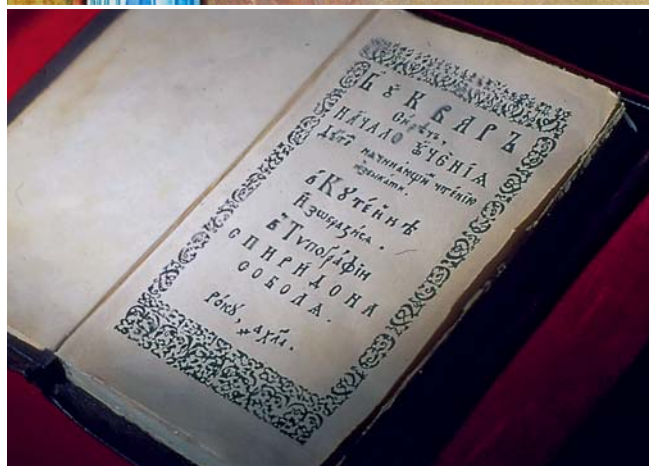 БꙋКВАРЪ
Сирѣчъ,
НАЧАЛО ꙋ҆ЧЕНІѦ
Дѣтемъ начинаючимъ чтенїю
извыкати.
в̾Кꙋте́йнѣ
И҆зшбразисѧ.
в̾Тѵпогра́фїи
СПИРИДОНА
СОБОЛѦ.
Ро́кꙋ, ҂ахла.